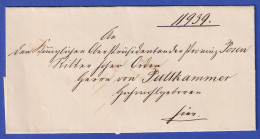 11939.
An
den Königlichen Oberpräsidenten der Provinz Posen
Ritter hoher Orden
Herrn von Puttkammer
Hochwohlgeboren
hier.